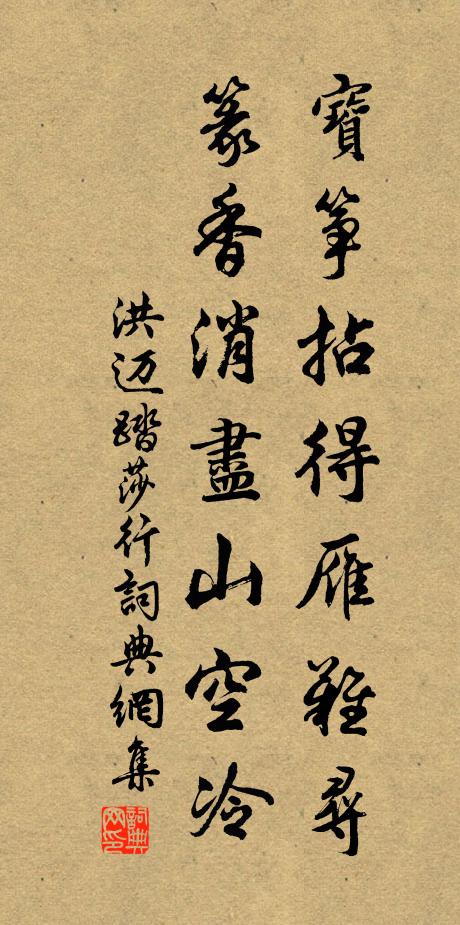 寶筝拈得雁難尋
篆香消盡山空冷
洪迈踏莎行詞典網集
詞典網印